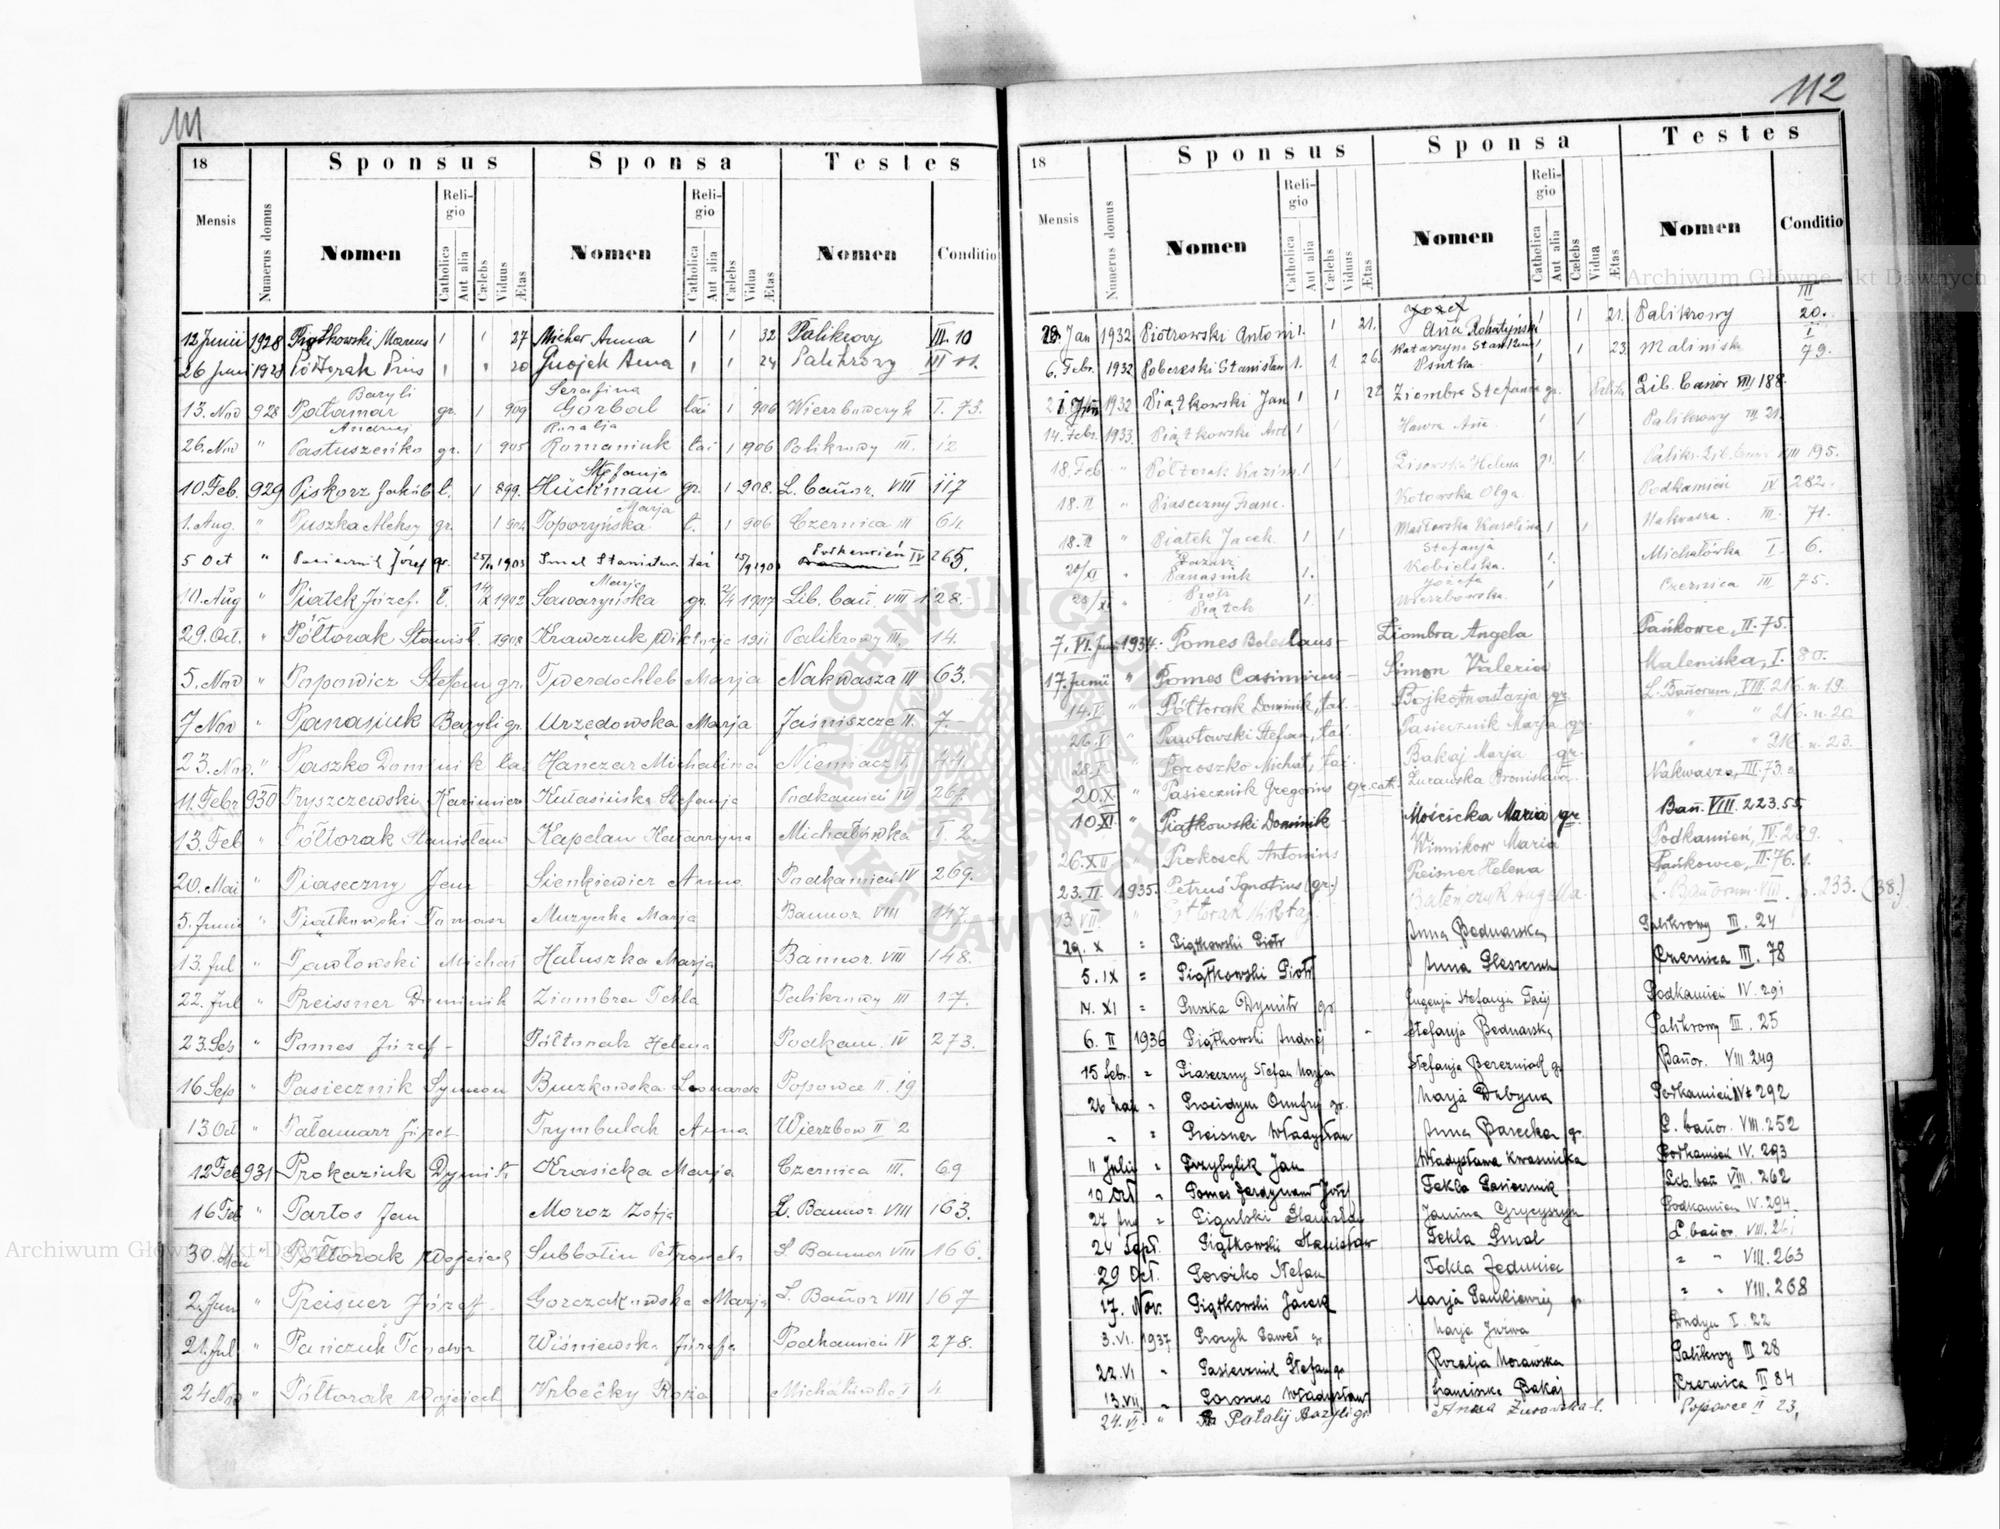 111
18 Sponsus Sponsa Testes
Mensis Numerus domus Nomen Religio Catholica Aut alia Cælebs Viduus Ætas Nomen Religio Catholica Aut alia Cælebs Vidua Ætas Nomen Conditio
12 Junii 1928 Piątkowski Marcus 1 1 27 Micher Anna 1 1 32 Palikrowy III. 10
26 Juni 1928 Półtorak Pius 1 " 20 Gnojek Anna 1 " 24 Palikrowy III 11.
Bazyli Serafina
13. Nov 928 Patamar gr. 1 909 Gorbal łać 1 906 Wierzbowczyk I. 73.
Andrzej Rozalja
26. Nov " Pastuszeńko gr. 1 905 Romaniuk łać 1 1906 Palikrowy III. 12
Stefanja
10 Feb. 929 Piskorz Jakób ł. 1 899. Hückman gr. 1 908. L. bańor. VIII 117
Marja
1. Aug. " Puszka Aleksy gr. 1 904 Toporzyńska ł. 1 906 Czernica III 64
5 Oct " Józef gr. 1903 Smal Stanisława łać Podkamień IV 265.
Marja
10. Aug " Piątek Józef. ł. 1902 Sawaryńska gr. 1907 Lib. bań. VIII 128.
29. Oct. " Półtorak Stanisł. 1908 Krawczuk Wiktorja 1911 Palikrowy III. 14.
5. Nov " Popowicz Stefan gr. Twerdochleb Marja Nakwasza III 63.
7 Nov " Panasiuk Bazyli gr. Urzędowska Marja Jaśniszcze II. 7.
23. Nov. " Paszko Dominik łać Hanczar Michalina Niemiacz 44
11. Febr 930 Pryszczewski Kazimierz Kułasińska Stefanja Podkamień IV 267.
13. Feb Półtorak Stanisław Kapelan Katarzyna Michałówka I. 2.
20. Mai " Piaseczny Jan Sienkiewicz Anna Podkamień IV 269.
5. Junii " Piątkowski Tomasz Muzyczka Marja Bannor. VIII 147.
13. Jul " Pawłowski Michał Hałuszka Marja Bannor. VIII 148.
22. Jul " Preissner Dominik Ziombra Tekla Palikrowy III 17.
23. Sep " Pomes Józef Półtorak Helena Podkam. IV 273.
16. Sep " Pasiecznik Szymon Buczkowska Leonarda Popowce II. 19
13 Oct " Pałamarz Józef Trymbulak Anna Wierzbow II 2
12 Feb 931 Prokaziuk Dymitr Krasicka Marja Czernica III. 69
16 Feb " Partos Jan Moroz Zofja L. Bannor VIII 163.
30. Mai " Półtorak Wojciech Subbotin Petronela L. Bannor VIII 166.
2. Jun " Preisner Józef Gorczakowska Marja L. Bańor VIII 167
21. Jul " Pańczuk Teodor Wiśniewska Józefa Podkamień IV 278.
24 Nov " Półtorak Wojciech Vrbečky Rozia Michałówka I 4
112
18 Sponsus Sponsa Testes
Mensis Numerus domus Nomen Religio Catholica Aut alia Cælebs Viduus Ætas Nomen Religio Catholica Aut alia Cælebs Vidua Ætas Nomen Conditio
Józef III
28. Jan 1932 Piotrowski Antoni 1. 1 21. Anna Rohatyńska 1 1 21. Palikrowy 20.
6. Febr. 1932 Pobereski Stanisław 1. 1. 26. Katarzyna 1 1 23. Maliniska I 79.
1932 Piątkowski Jan 1 1 22 Ziombra Stefania gr. Lib. banor VIII 188.
14. Febr. 1933. Piątkowski Ant 1 1 Hawra 1 1 Palikrowy III 21.
18. Feb " Półtorak Kazim. 1 Lisowska Helena gr. 1. Palikr. Lib. banor VIII 195.
18. II " Piaseczny Franc. Kotowska Olga Podkamień IV 282.
18. II " Piątek Jacek. 1 1 Masłowska Karolina 1 1 Nakwasza. III. 71.
Stefanja
20/XI " Panasiuk 1. Kobielska. 1. Michałówka I. 6.
Piotr Józefa
23/XI " Piątek 1. Wierzbowska. 1 Czernica III 75.
7. VI. Juni 1934. Pomes Boleslaus Ziombra Angela Pańkowce, II. 75.
17. Junii " Pomes Casimirus Simon Valeria Maleniska, I. 80.
14. V " Półtorak Dominik, łać. Bojko Anastazja gr. L. Bańorum, VIII. 216. n. 19.
26. V " Pawłowski Stefan, łać. Pasiecznik Marja gr. " " 216. n. 20
28. I " Poroszko Michał, łać. Bakaj Marja gr. " " 216. n. 23.
20. X " Pasiecznik Gregorius gr. cath. Żurawska Bronisława Nakwasza, III. 73. a
10. XI " Piątkowski Dominik Mościcka Maria gr. Bań. VIII. 223. 55.
26. XII " Prokosch Antonius Winnikow Maria Podkamień, IV. 289.
23. II 1935. Petruś Ignatius (gr.) Preisner Helena Pańkowce, II. 76. 1.
13. VII " Półtorak Mikołaj. Bateńczyk Angella. L. Bańorum VIII. p. 233. (38.)
29. X = Piątkowski Piotr Anna Bednarska Palikrowy III. 24
5. IX = Piątkowski Piotr Anna Czernica III. 78
14. XI = Puszka Dymitr gr. Eugenja Stefanja Podkamień IV. 291
6. II 1936 Piątkowski Andrzej Stefanja Bednarska Palikrowy III. 25
15 febr. " Piaseczny Stefan Stefanja Berezniak gr. Bańor. VIII 249
26 Maii " Procidym Onufry gr. Marja Drbyna Podkamień IV 292
" " Preisner Władysław Anna Barecka gr. L. bańor. VIII. 252
11 Julii " Przybylik Jan Władysława Kwaśnicka Podkamień IV. 293
10 Oct " Pomes Ferdynand Józef Tekla Pasiecznik Lib. bań VIII. 262
27 Aug = Pigulski Stanisław Janina Grycyszyn Podkamień IV. 294
24 Sept. Piątkowski Stanisław Tekla Smal L bańor. VIII. 261
29 Oct. Porożko Stefan Tekla = " VIII. 263
17. Nov. Piątkowski Jacek Marja Pankiewicz gr " " VIII. 268
3. VI. 1937 Procyk Paweł gr Marja I. 22
22. VI " Pasiecznik Stefan gr Rozalja Morawska Palikrowy III 28
13. VII. " Poronko Władysław Franciszka Bakaj Czernica III 84
24. VI. " Patalij Bazyli gr. Anna Żurawska ł. Popowce II 23,
Archiwum Główne Akt Dawnych
Archiwum Główne Akt Dawnych
ARCHIWUM GŁÓWNE AKT DAWNYCH